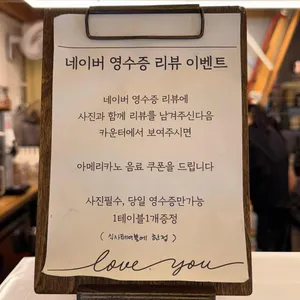 네이버 영수증 리뷰 이벤트
네이버 영수증 리뷰에
사진과 함께 리뷰를 남겨주신다음
카운터에서 보여주시면
아메리카노 음료 쿠폰을 드립니다
사진필수, 당일 영수증만가능
1테이블1개증정
한정)
love you